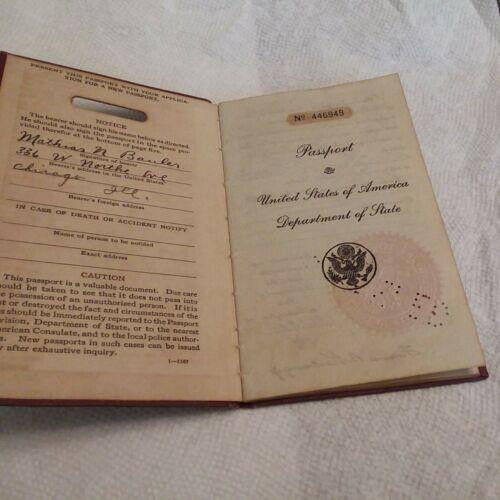 PRESENT THIS PASSPORT WITH YOUR APPLICA-
TION FOR A NEW PASSPORT.
NOTICE
The bearer should sign his name below as directed.
He should also sign the passport in the space pro-
vided therefor at the bottom of page five.
Mathias N Bauler
Signature of bearer
336 W North Ave
Bearer's address in the United States
Chicago Ill.
Bearer's foreign address
IN CASE OF DEATH OR ACCIDENT NOTIFY
Name of person to be notified
Exact address
CAUTION
This passport is a valuable document. Due care
should be taken to see that it does not pass into
e possession of an unauthorized person. If it is
t or destroyed the fact and circumstances of the
s should be immediately reported to the Passport
vision, Department of State, or to the nearest
merican Consulate, and to the local police author-
s. New passports in such cases can be issued
y after exhaustive inquiry.
1—1107
No 446949
Passport
United States of America
Department of State